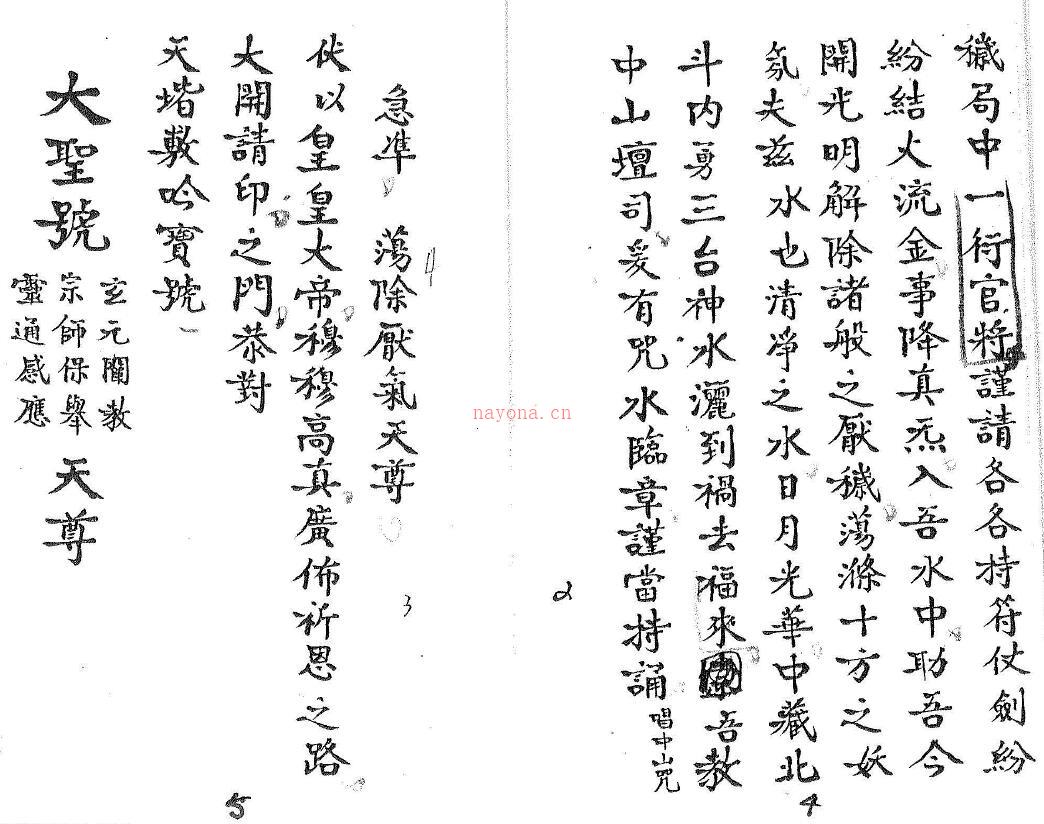 穢局中一行官將謹請各各持符仗劍紛
紛結火流金事降真炁入吾水中助吾今
開光明解除諸般之厭穢蕩滌十方之妖
氛夫茲水也清淨之水日月光華中藏北
斗內勇三台神水灑到禍去福來吾教
中山壇司爰有咒水臨章謹當持誦 唱中山咒
4
2
急準 蕩除厭氣天尊
3
伏以皇皇大帝穆穆高真廣佈祈恩之路
大開請印之門恭對
天堦敷吟寶號
大聖號
玄元闡教
宗師保舉
靈通感應
天尊
5
nayona.cn